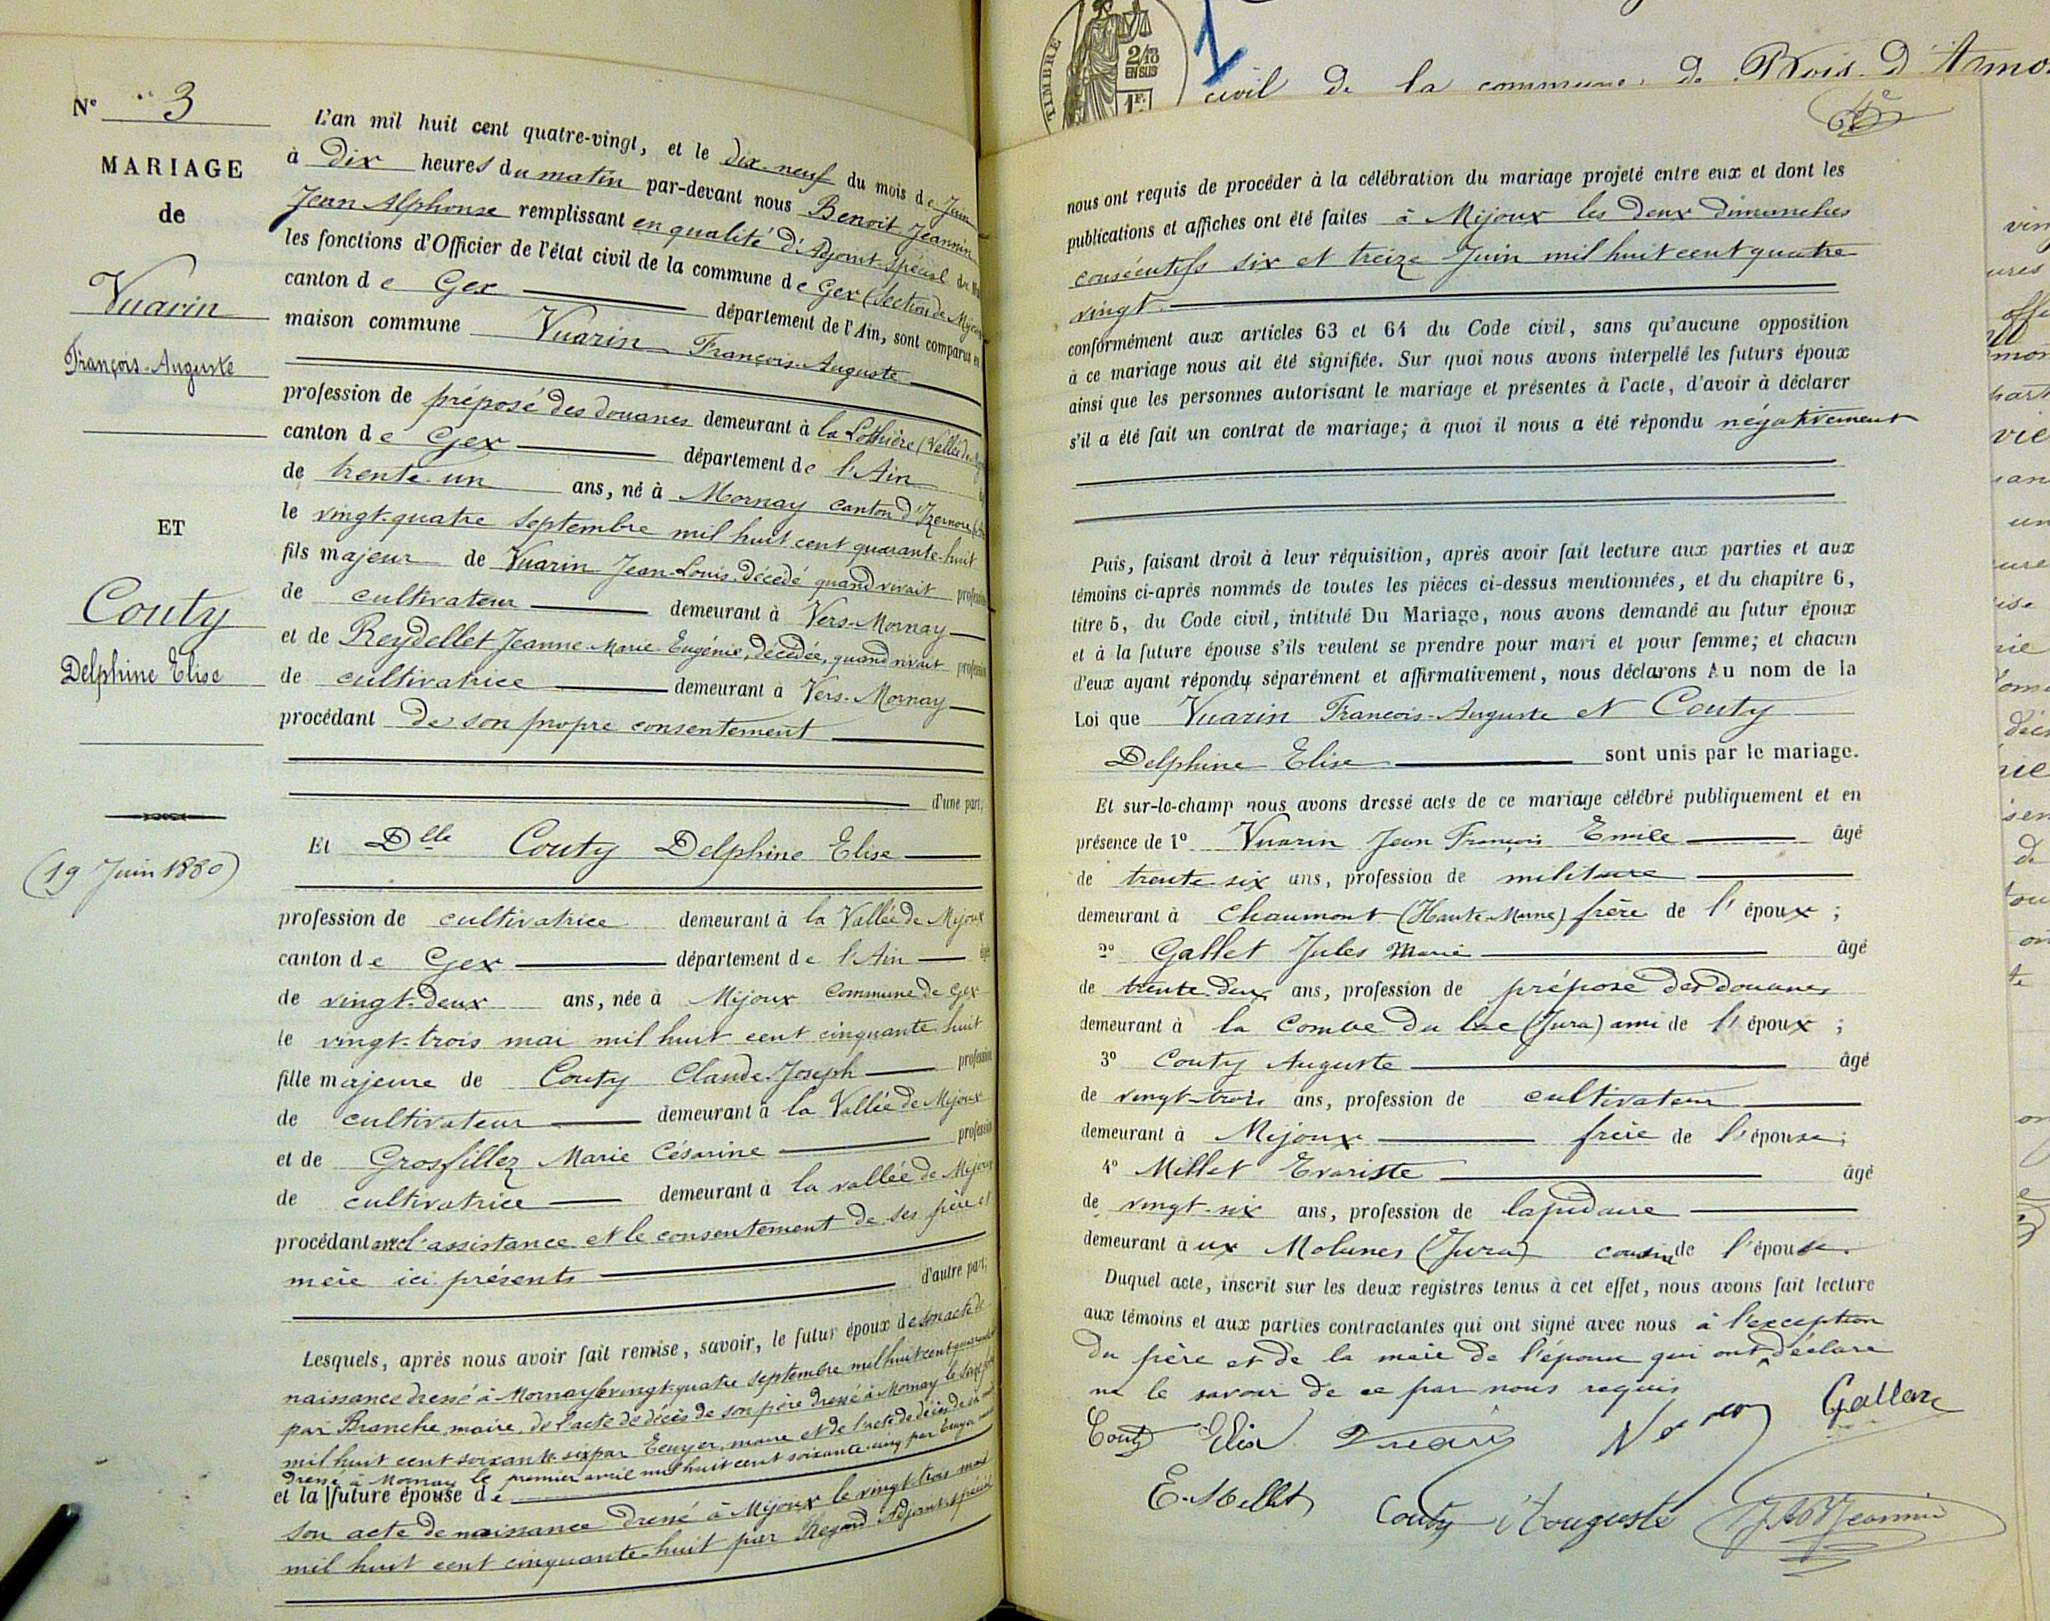 N° 3
MARIAGE
de
Vuarin
François-Auguste
ET
Couty
Delphine Elise
(19 Juin 1880)
L'an mil huit cent quatre-vingt, et le dix-neuf du mois de Juin
à dix heures du matin par-devant nous Benoit Jeannin
Jean Alphonse remplissant en qualité d'Adjoint-spécial
les fonctions d'Officier de l'état civil de la commune de Gex (Section de Mijoux
canton de Gex département de l'Ain, sont comparus en
maison commune Vuarin François-Auguste
profession de préposé des douanes demeurant à la (Vallée de
canton de Gex département de l'Ain
de trente-un ans, né à Mornay canton d'Izernore
le vingt-quatre septembre mil huit cent quarante-huit
fils majeur de Vuarin Jean-Louis décédé quand vivait profession
de cultivateur demeurant à Vers-Mornay
et de Reydellet Jeanne-Marie-Eugénie, décédée, quand vivait profession
de cultivatrice demeurant à Vers-Mornay
procédant de son propre consentement
d'une part;
Et Dlle Couty Delphine Elise
profession de cultivatrice demeurant à la Vallée de Mijoux
canton de Gex département de l'Ain âgée
de vingt-deux ans, née à Mijoux commune de Gex
le vingt-trois mai mil huit cent cinquante-huit
fille majeure de Couty Claude-Joseph profession
de cultivateur demeurant à la Vallée de Mijoux
et de Grosfillez Marie Césarine profession
de cultivatrice demeurant à la vallée de Mijoux
procédant avec l'assistance et le consentement de ses père et
mère ici présents
d'autre part;
Lesquels, après nous avoir fait remise, savoir, le futur époux de son acte de
naissance dressé à Mornay le vingt-quatre septembre mil huit cent quarante
par Branche, maire, de l'acte de décès de son père dressé à Mornay le
mil huit cent soixante-six par Ecuyer, maire et de l'acte de décès de
dressé à Mornay le premier avril mil huit cent soixante-cinq par Ecuyer
et la future épouse de
son acte de naissance dressé à Mijoux le vingt-trois mai
mil huit cent cinquante-huit par Regard Adjoint-spécial
TIMBRE
2/10
EN SUS
1F.
1
civil de la commune de Bois d'Amo
nous ont requis de procéder à la célébration du mariage projeté entre eux et dont les
publications et affiches ont été faites à Mijoux les deux dimanches
consécutifs six et treize Juin mil huit cent quatre
vingt
conformément aux articles 63 et 64 du Code civil, sans qu'aucune opposition
à ce mariage nous ait été signifiée. Sur quoi nous avons interpellé les futurs époux
ainsi que les personnes autorisant le mariage et présentes à l'acte, d'avoir à déclarer
s'il a été fait un contrat de mariage; à quoi il nous a été répondu négativement
Puis, faisant droit à leur réquisition, après avoir fait lecture aux parties et aux
témoins ci-après nommés de toutes les pièces ci-dessus mentionnées, et du chapitre 6,
titre 5, du Code civil, intitulé Du Mariage, nous avons demandé au futur époux
et à la future épouse s'ils veulent se prendre pour mari et pour femme; et chacun
d'eux ayant répondu séparément et affirmativement, nous déclarons Au nom de la
Loi que Vuarin François-Auguste et Couty
Delphine Elise sont unis par le mariage.
Et sur-le-champ nous avons dressé acte de ce mariage célébré publiquement et en
présence de 1° Vuarin Jean François Emile âgé
de trente-six ans, profession de militaire
demeurant à Chaumont (Haute-Marne) frère de l'époux;
2° Gallet Jules Marie âgé
de trente-deux ans, profession de préposé des douanes
demeurant à la Combe du lac (Jura) ami de l'époux;
3° Couty Auguste âgé
de vingt-trois ans, profession de cultivateur
demeurant à Mijoux frère de l'épouse;
4° Millet Evariste âgé
de vingt-six ans, profession de lapidaire
demeurant aux Molunes (Jura) cousin de l'épouse.
Duquel acte, inscrit sur les deux registres tenus à cet effet, nous avons fait lecture
aux témoins et aux parties contractantes qui ont signé avec nous à l'exception
du père et de la mère de l'épouse qui ont déclaré
ne le savoir de ce par nous requis
Couty Elise Vuarin
E. Millet Couty Auguste JABJeannin